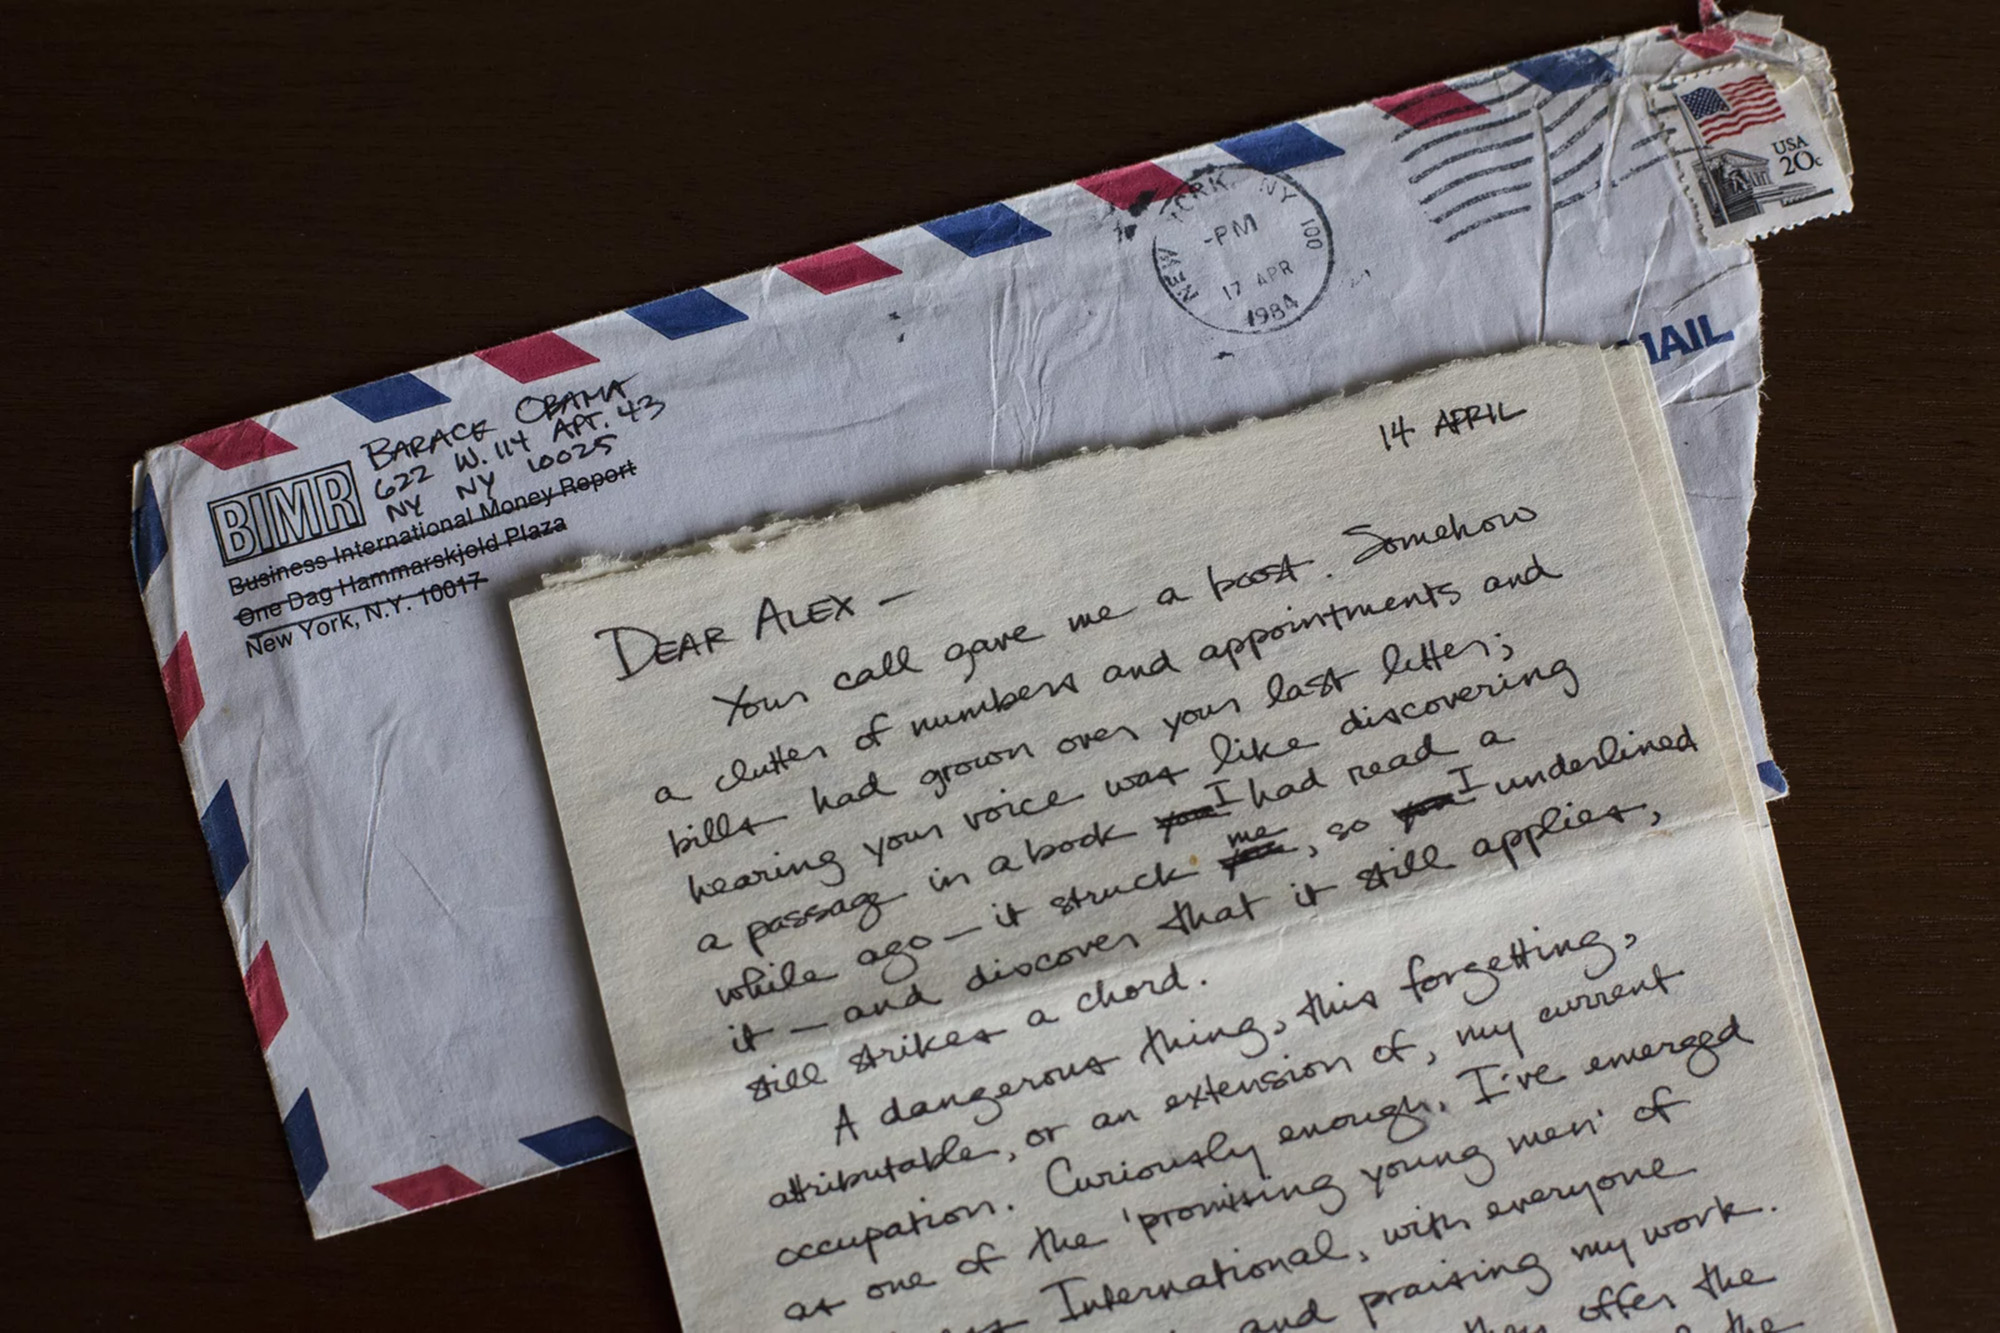 BARACK OBAMA
622 W. 114 APT. 43
NY NY 10025
BIMR
Business International Money Report
One Dag Hammarskjold Plaza
New York, N.Y. 10017
NEW YORK NY 100
-PM
17 APR
1984
USA
20c
MAIL
14 APRIL
DEAR ALEX —
Your call gave me a boost. Somehow
a clutter of numbers and appointments and
bills had grown over your last letter;
hearing your voice was like discovering
a passage in a book I had read a
while ago — it struck me, so I underlined
it — and discover that it still applies,
still strikes a chord.
A dangerous thing, this forgetting,
attributable, or an extension of, my current
occupation. Curiously enough, I've emerged
as one of the 'promising young men' of
International, with everyone
and praising my work.
they offer the
the